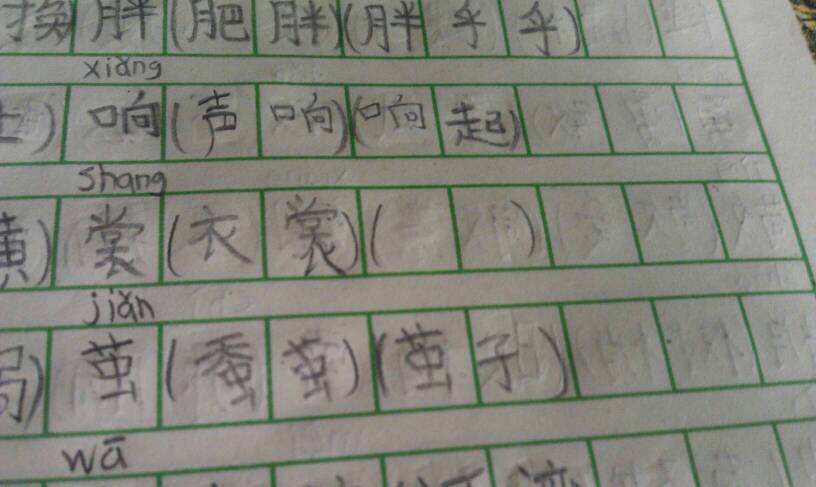 换胖(肥胖)(胖乎乎)
xiǎng
)响(声响)(响起)
shang
)裳(衣裳)( )
jiǎn
)茧(蚕茧)(茧子)
wā